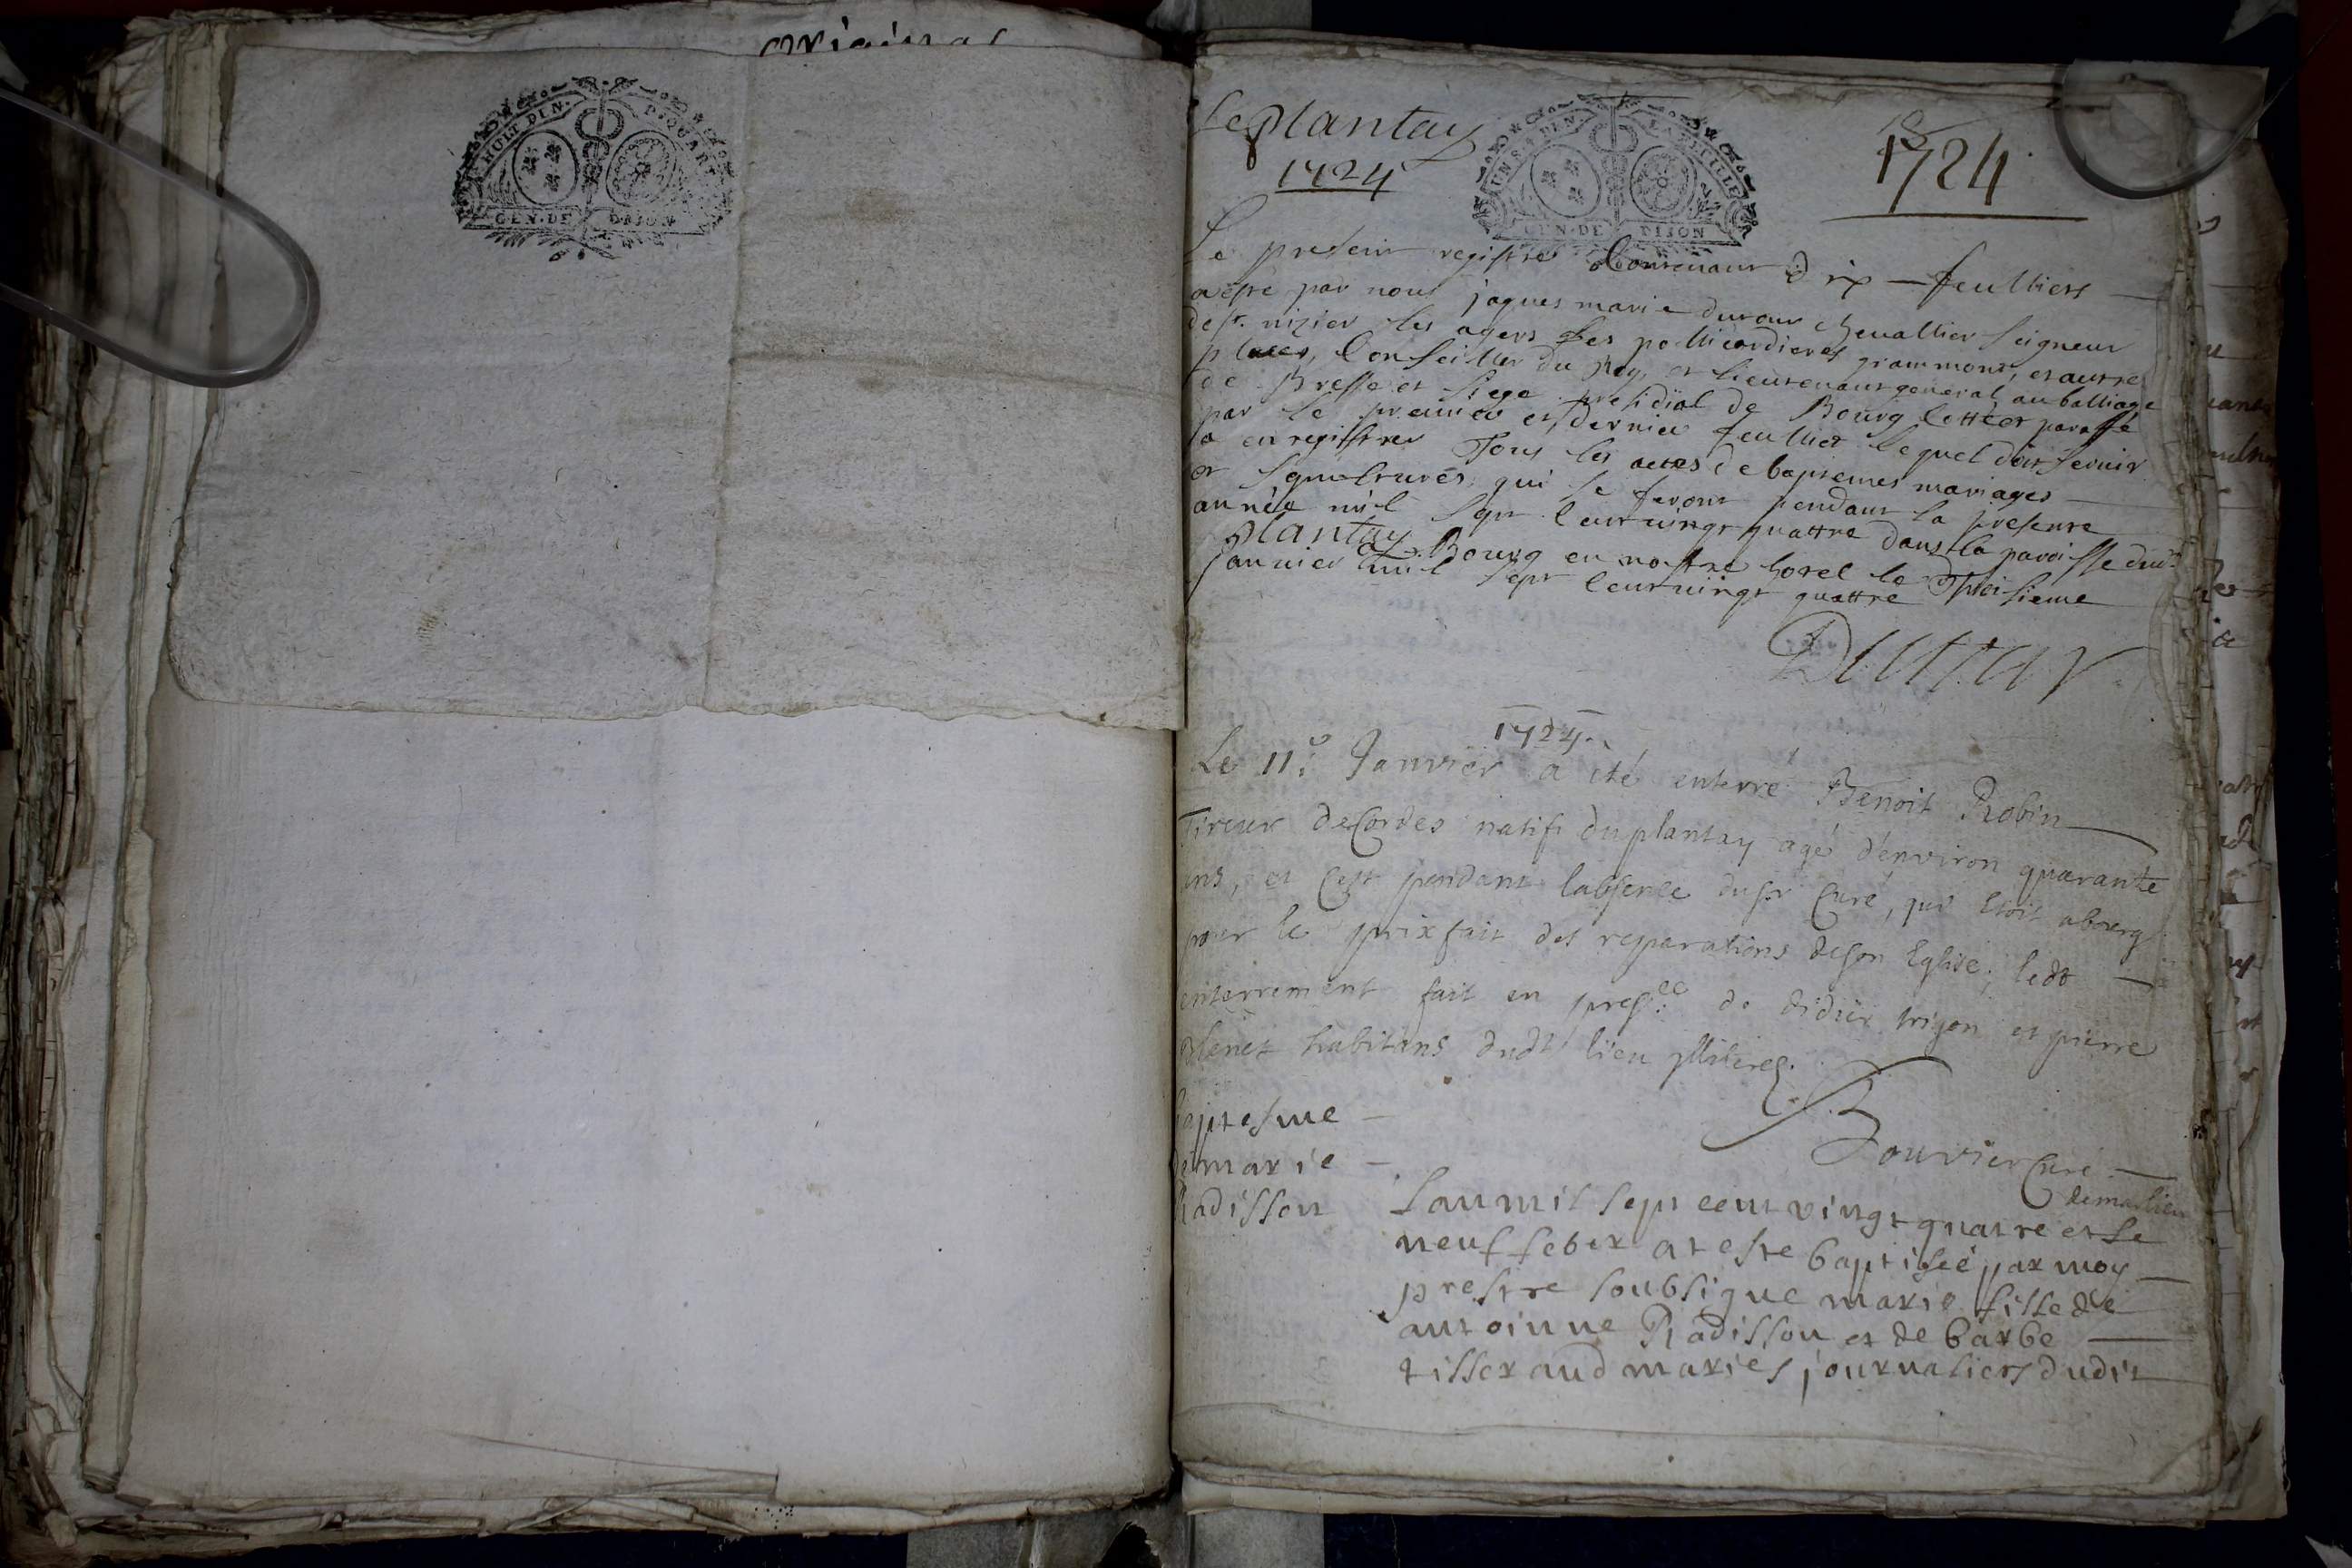 original
HUIT DEN. P. QUART
GEN. DE DIJON
Le plantay
1724
UN S. 4 DEN. LA FEUILLE
GEN. DE DIJON
1724
Le present registre Contenant dix feulliets
a esté par nous jaques marie dutour chevallier seigneur
de st. nizier les agers grammont, et autres
places, Conseiller du Roy, et lieutenant general au balliage
de Bresse et siege presidial de Bourg Cotté et paraffé
par le premier et dernier feulliet lequel doit servir
a enregistrer Tous les actes de baptemes mariages
et sepultures qui se feront pendant la presente
année mil sept Cent vingt quattre dans la paroisse dud.
plantay a Bourg en nostre hotel le Troisieme
janvier mil sept Cent vingt quattre
1724.
Le 11e. Janvier a été enterré Benoit Robin
Tireur de Cordes natif du plantay agé d'environ quarante
ans, et Cest pendant labsence du sr Curé, qui Etoit a bourg
pour le prixfait des reparations de son Eglise; ledt
enterrement fait en presce. de didier trigon et pierre
Blenet habitans dudt lieu illiterés.
Bouvier Curé
de marlieu
baptesme
de marie
Radisson
Lan mil sept cent vingt quatre et le
neuf feber at este baptisée par moy
prestre soubsigne marie fille de
antoinne Radisson et de barbe
tisserand mariés journaliers dudit